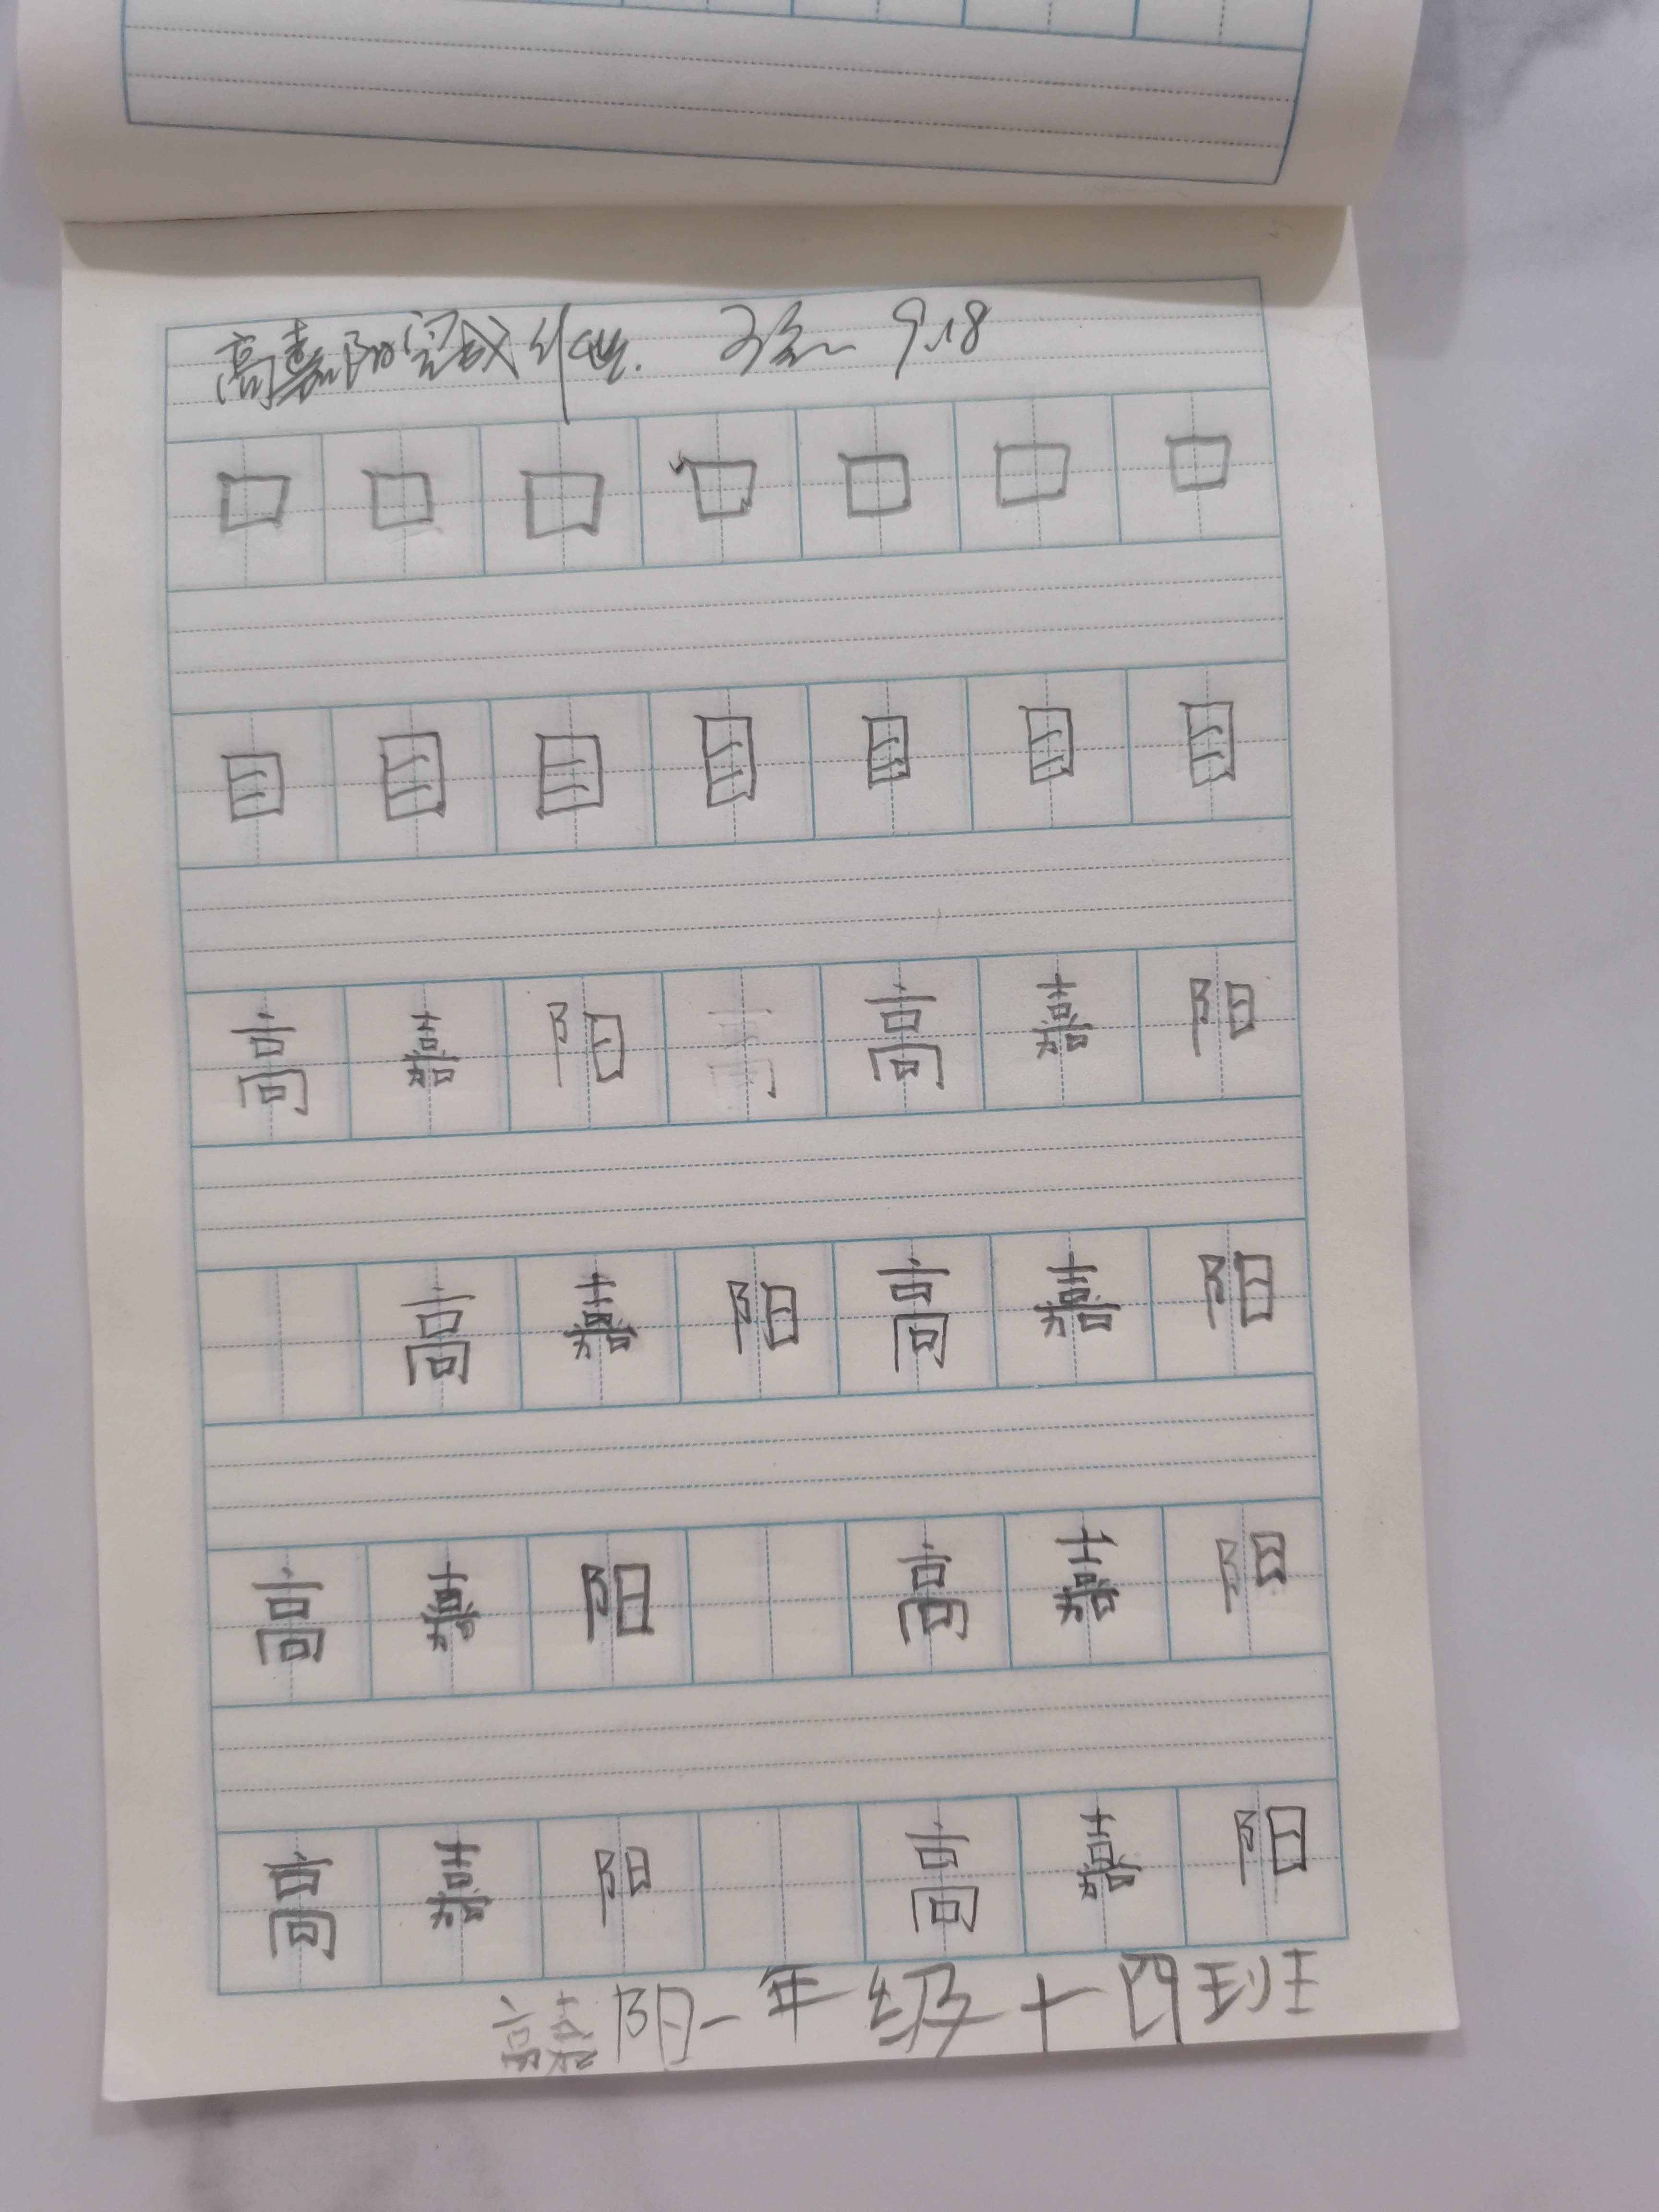 高嘉阳完成作业. 9.18
口 口 口 口 口 口 口
目 目 目 目 目 目 目
高 嘉 阳 高 高 嘉 阳
高 嘉 阳 高 嘉 阳
高 嘉 阳 高 嘉 阳
高 嘉 阳 高 嘉 阳
高嘉阳一年级十四班